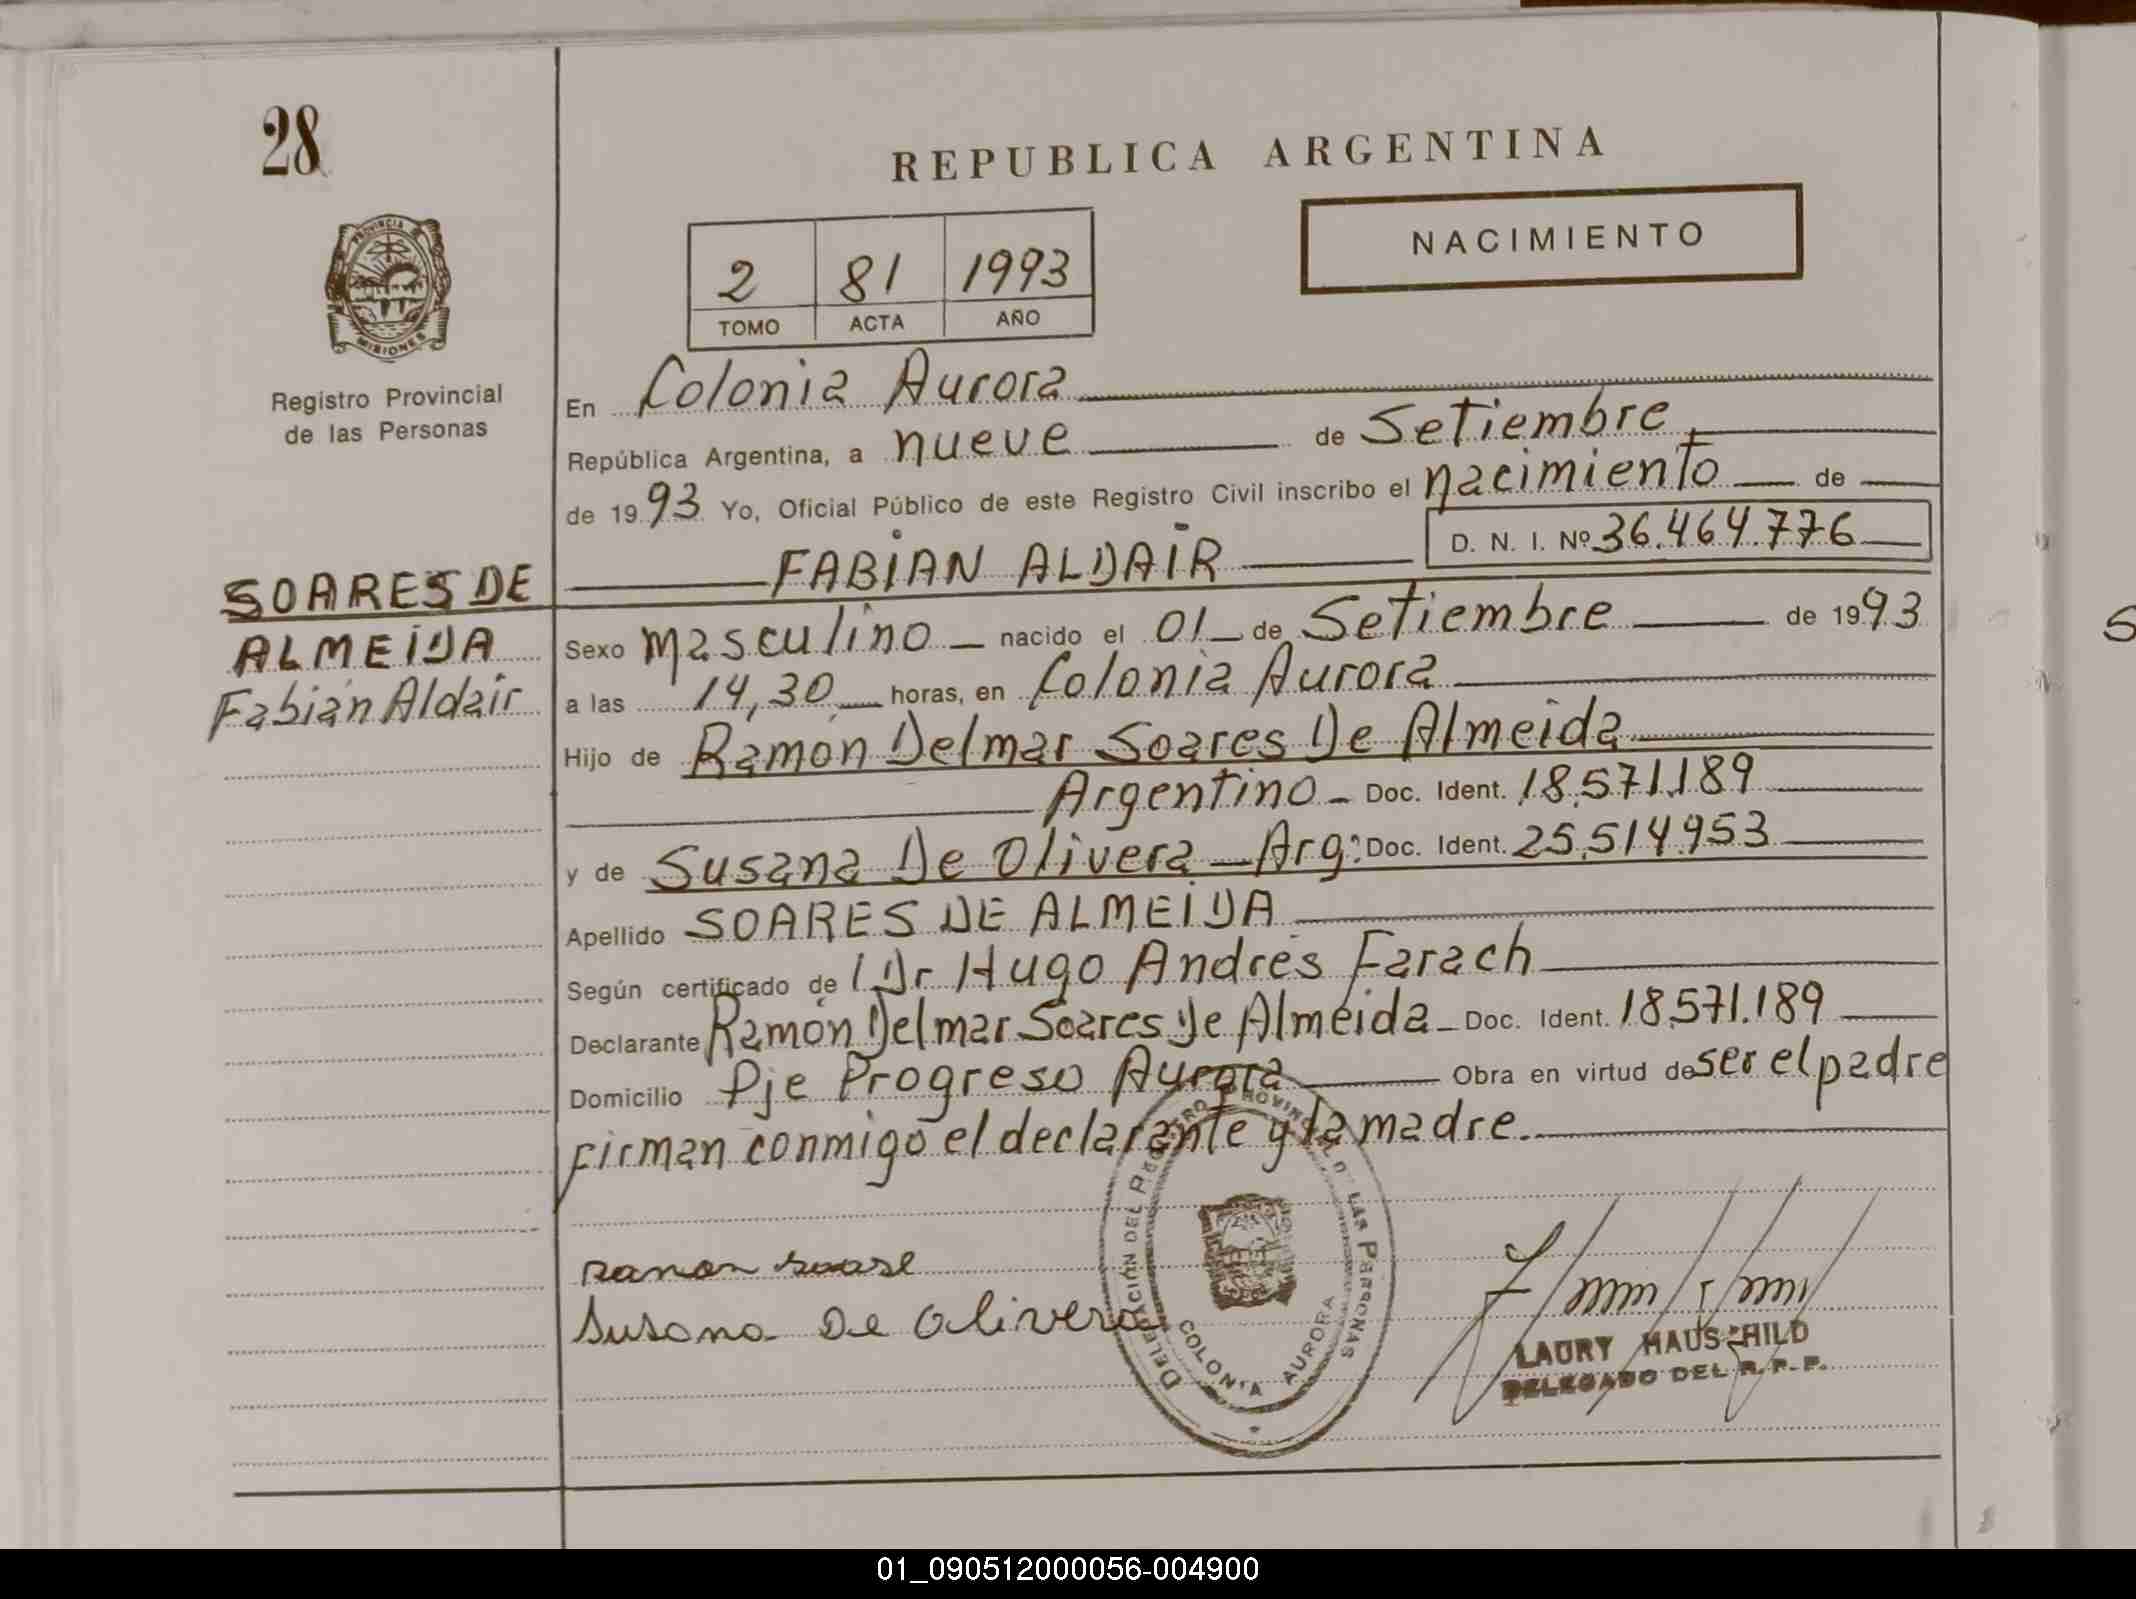 28
REPUBLICA ARGENTINA
NACIMIENTO
2 81 1993
TOMO ACTA AÑO
PROVINCIA DE MISIONES
Registro Provincial
de las Personas
En Colonia Aurora
República Argentina, a nueve de Setiembre
de 1993 Yo, Oficial Público de este Registro Civil inscribo el nacimiento de
D. N. I. Nº 36.464.776
FABIAN ALDAIR
SOARES DE
ALMEIDA
Fabián Aldair
Sexo Masculino nacido el 01 de Setiembre de 1993
a las 14,30 horas, en Colonia Aurora
Hijo de Ramón Delmar Soares De Almeida
Argentino Doc. Ident. 18.571.189
y de Susana De Olivera - Arg: Doc. Ident. 25.514.953
Apellido SOARES DE ALMEIDA
Según certificado de Dr Hugo Andrés Farach
Declarante Ramón Delmar Soares De Almeida Doc. Ident. 18.571.189
Domicilio Pje Progreso Aurora Obra en virtud de ser el padre
Firman conmigo el declarante y la madre.
DELEGACIÓN DEL REGISTRO PROVINCIAL DE LAS PERSONAS
COLONIA AURORA
Susana De Olivera
LAURY HAUSCHILD
DELEGADO DEL R.P.P.
01_090512000056-004900